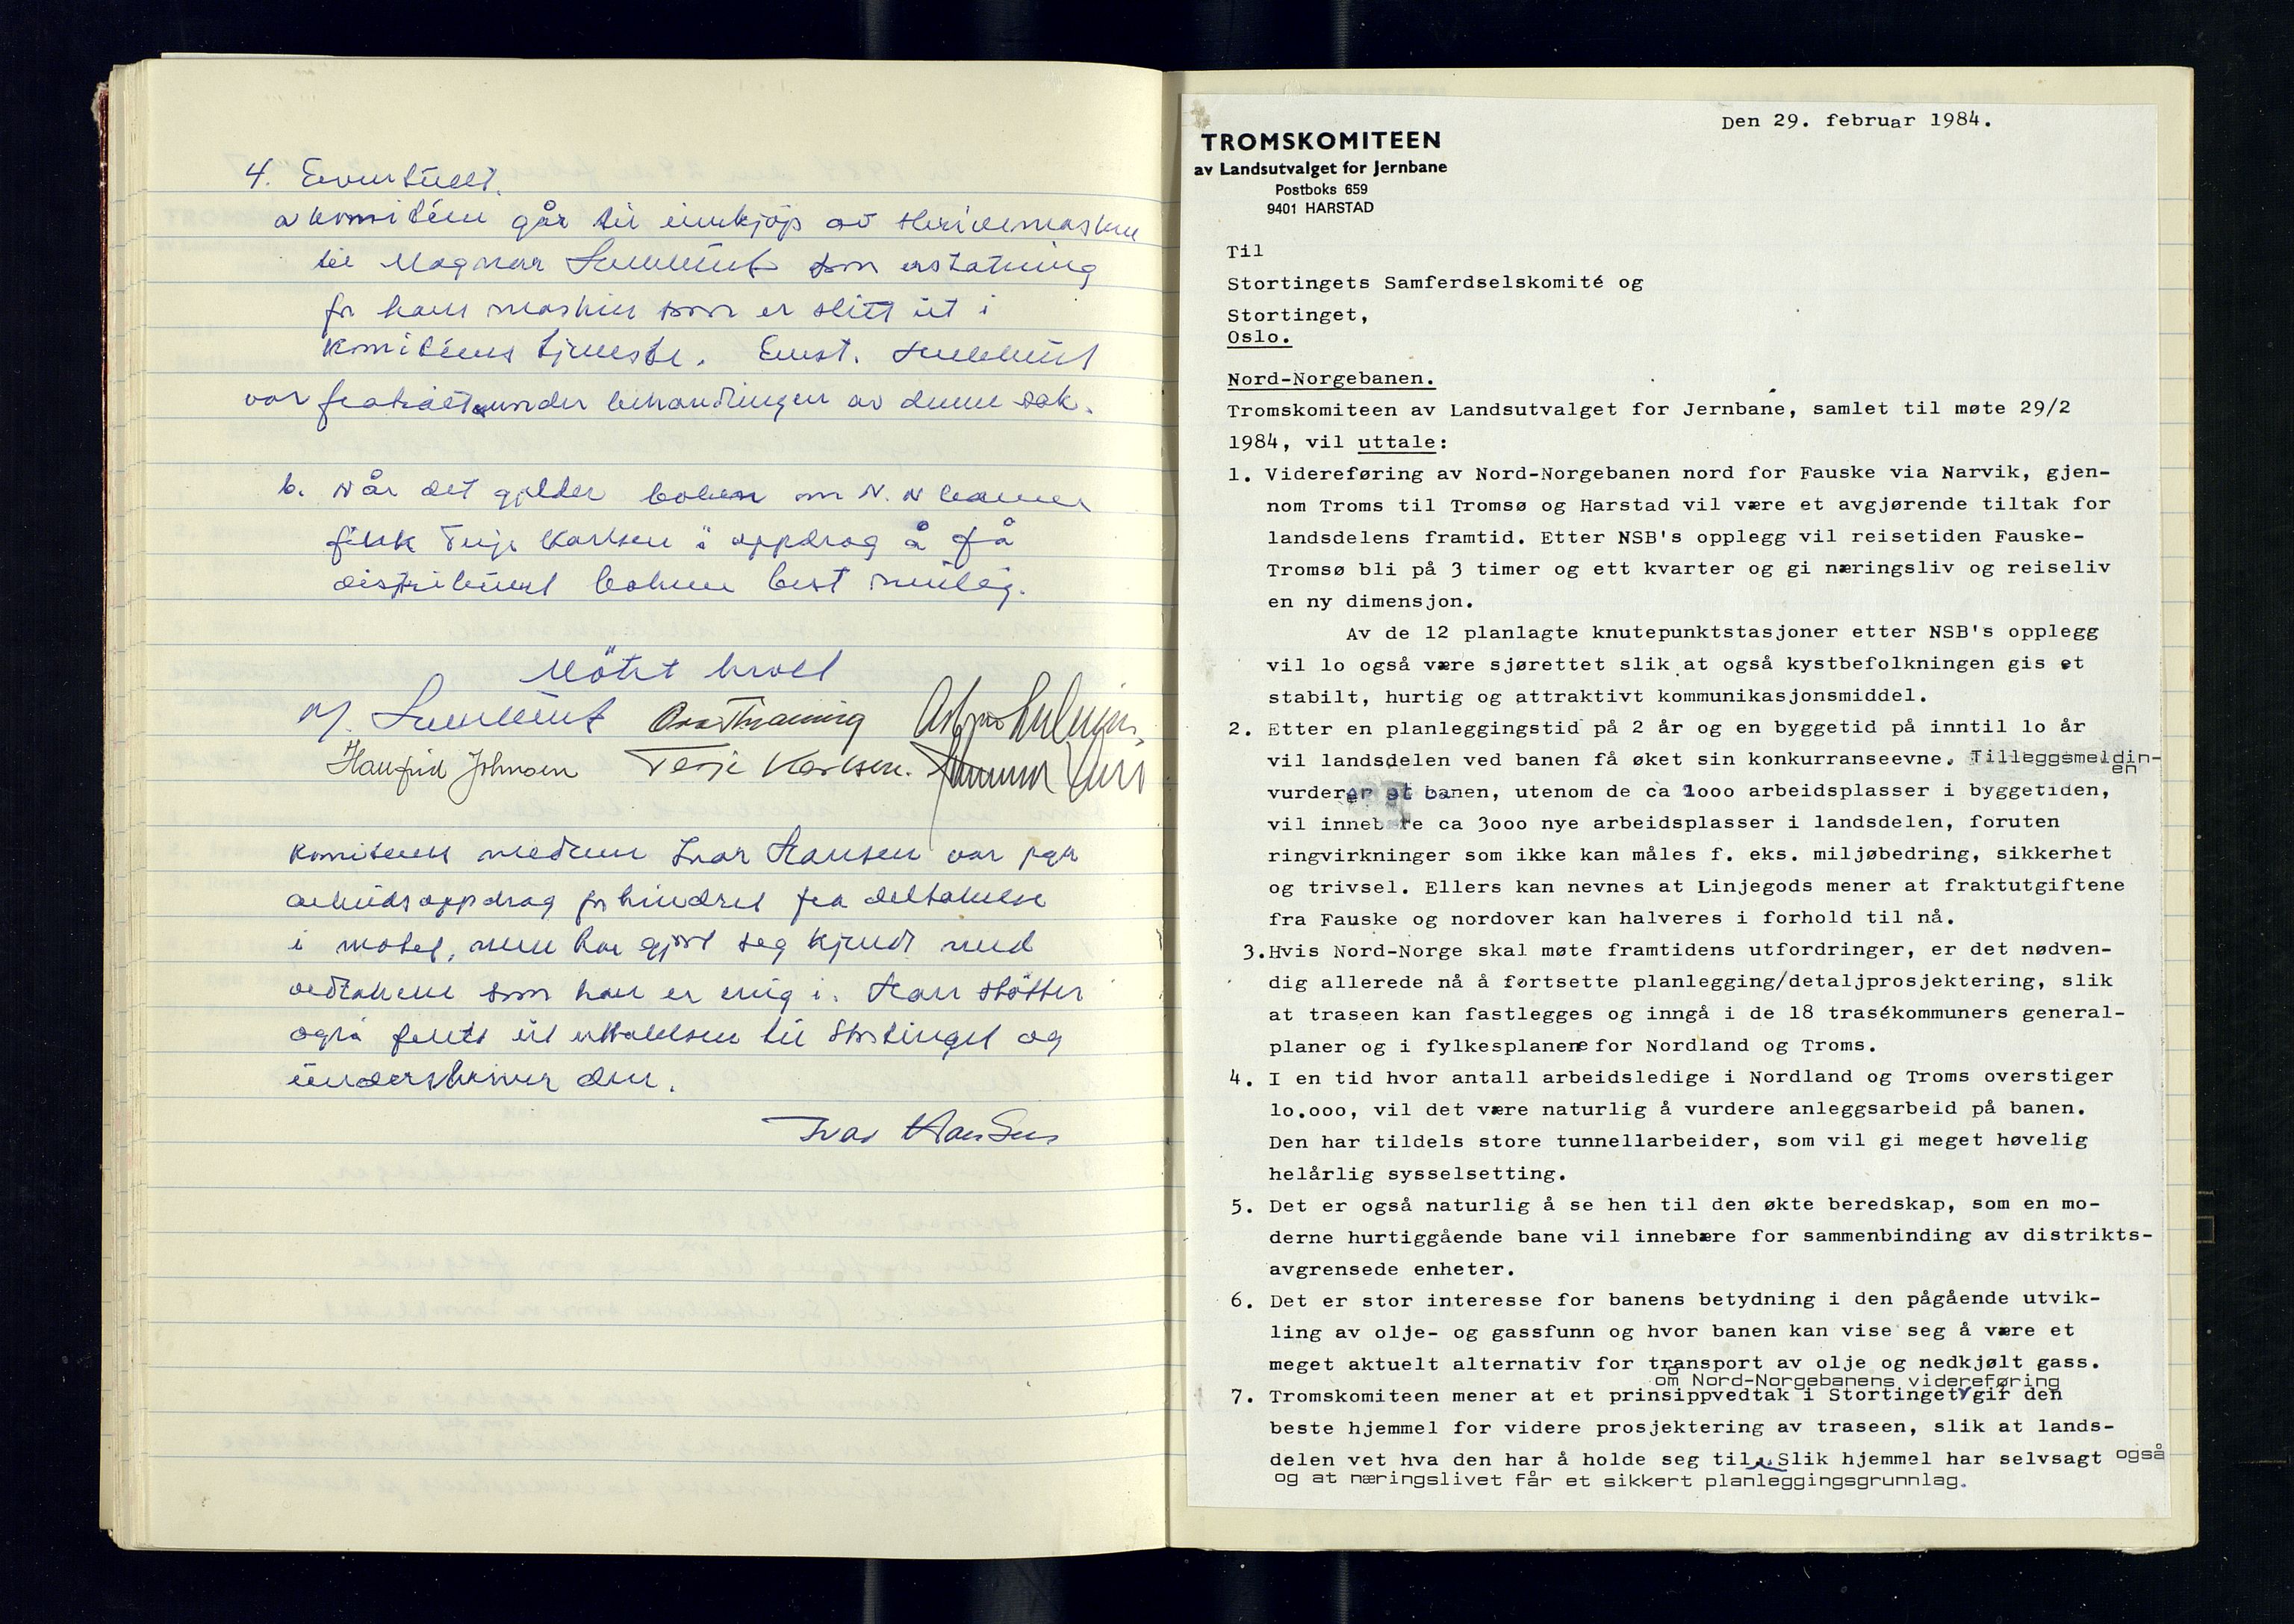 4. Eventuelt.
a komitéen går til innkjöp av skrivemaskin
til Magnar som erstatning
for hans maskin som er slitt ut i
komitéens tjeneste. Einst.
var fratrådt under behandlingen av denne sak.
b. Når det gjelder boken om N.N banen
fikk Terje Karlsen i oppdrag å få
distribuert bokene best mulig.
Mötet hevet
M.
Haufrid Johnsen Terje Karlsen.
Komiteens medlem Ivar Hansen var pga
arbeidsoppdrag forhindret fra deltakelse
i motet, men har gjort seg kjendt med
vedtakene som han er enig i. Han stötter
også fullt ut uttalelsen til Stortinget og
underskriver den.
Ivar Hansen
Den 29. februar 1984.
TROMSKOMITEEN
av Landsutvalget for Jernbane
Postboks 659
9401 HARSTAD
Til
Stortingets Samferdselskomité og
Stortinget,
Oslo.
Nord-Norgebanen.
Tromskomiteen av Landsutvalget for Jernbane, samlet til møte 29/2
1984, vil uttale:
1. Videreføring av Nord-Norgebanen nord for Fauske via Narvik, gjen-
nom Troms til Tromsø og Harstad vil være et avgjørende tiltak for
landsdelens framtid. Etter NSB's opplegg vil reisetiden Fauske-
Tromsø bli på 3 timer og ett kvarter og gi næringsliv og reiseliv
en ny dimensjon.
Av de 12 planlagte knutepunktstasjoner etter NSB's opplegg
vil lo også være sjørettet slik at også kystbefolkningen gis et
stabilt, hurtig og attraktivt kommunikasjonsmiddel.
2. Etter en planleggingstid på 2 år og en byggetid på inntil lo år
vil landsdelen ved banen få øket sin konkurranseevne. Tilleggsmeldin-
en
vurderer at banen, utenom de ca 1ooo arbeidsplasser i byggetiden,
vil innebære ca 3ooo nye arbeidsplasser i landsdelen, foruten
ringvirkninger som ikke kan måles f. eks. miljøbedring, sikkerhet
og trivsel. Ellers kan nevnes at Linjegods mener at fraktutgiftene
fra Fauske og nordover kan halveres i forhold til nå.
3.Hvis Nord-Norge skal møte framtidens utfordringer, er det nødven-
dig allerede nå å fortsette planlegging/detaljprosjektering, slik
at traseen kan fastlegges og inngå i de 18 trasékommuners general-
planer og i fylkesplanene for Nordland og Troms.
4. I en tid hvor antall arbeidsledige i Nordland og Troms overstiger
lo.ooo, vil det være naturlig å vurdere anleggsarbeid på banen.
Den har tildels store tunnellarbeider, som vil gi meget høvelig
helårlig sysselsetting.
5. Det er også naturlig å se hen til den økte beredskap, som en mo-
derne hurtiggående bane vil innebære for sammenbinding av distrikts-
avgrensede enheter.
6. Det er stor interesse for banens betydning i den pågående utvik-
ling av olje- og gassfunn og hvor banen kan vise seg å være et
meget aktuelt alternativ for transport av olje og nedkjølt gass.
om Nord-Norgebanens videreføring
7. Tromskomiteen mener at et prinsippvedtak i Stortinget gir den
beste hjemmel for videre prosjektering av traseen, slik at lands-
delen vet hva den har å holde seg til. Slik hjemmel har selvsagt også
og at næringslivet får et sikkert planleggingsgrunnlag.